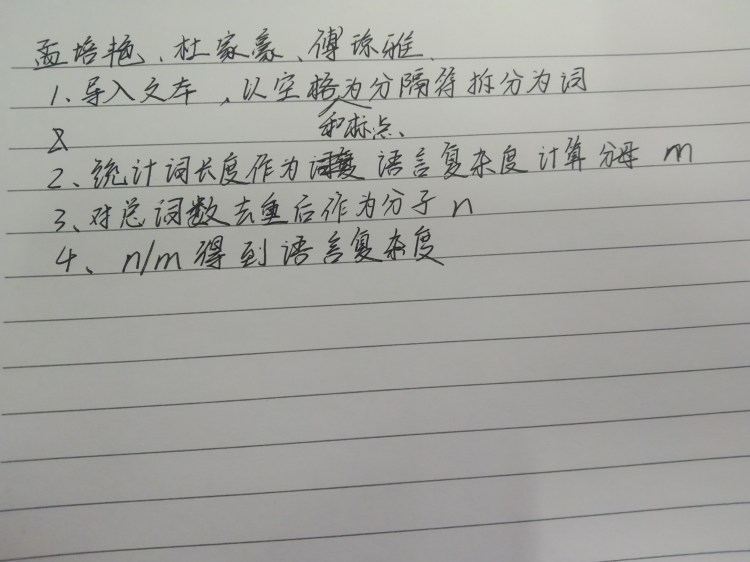 孟培艳、杜家豪、傅琼雅.
1、导入文本，以空格和标点、为分隔符拆分为词
2、统计词长度作为 语言复杂度计算分母 m
3、对总词数去重后作为分子 n
4、n/m 得到语言复杂度